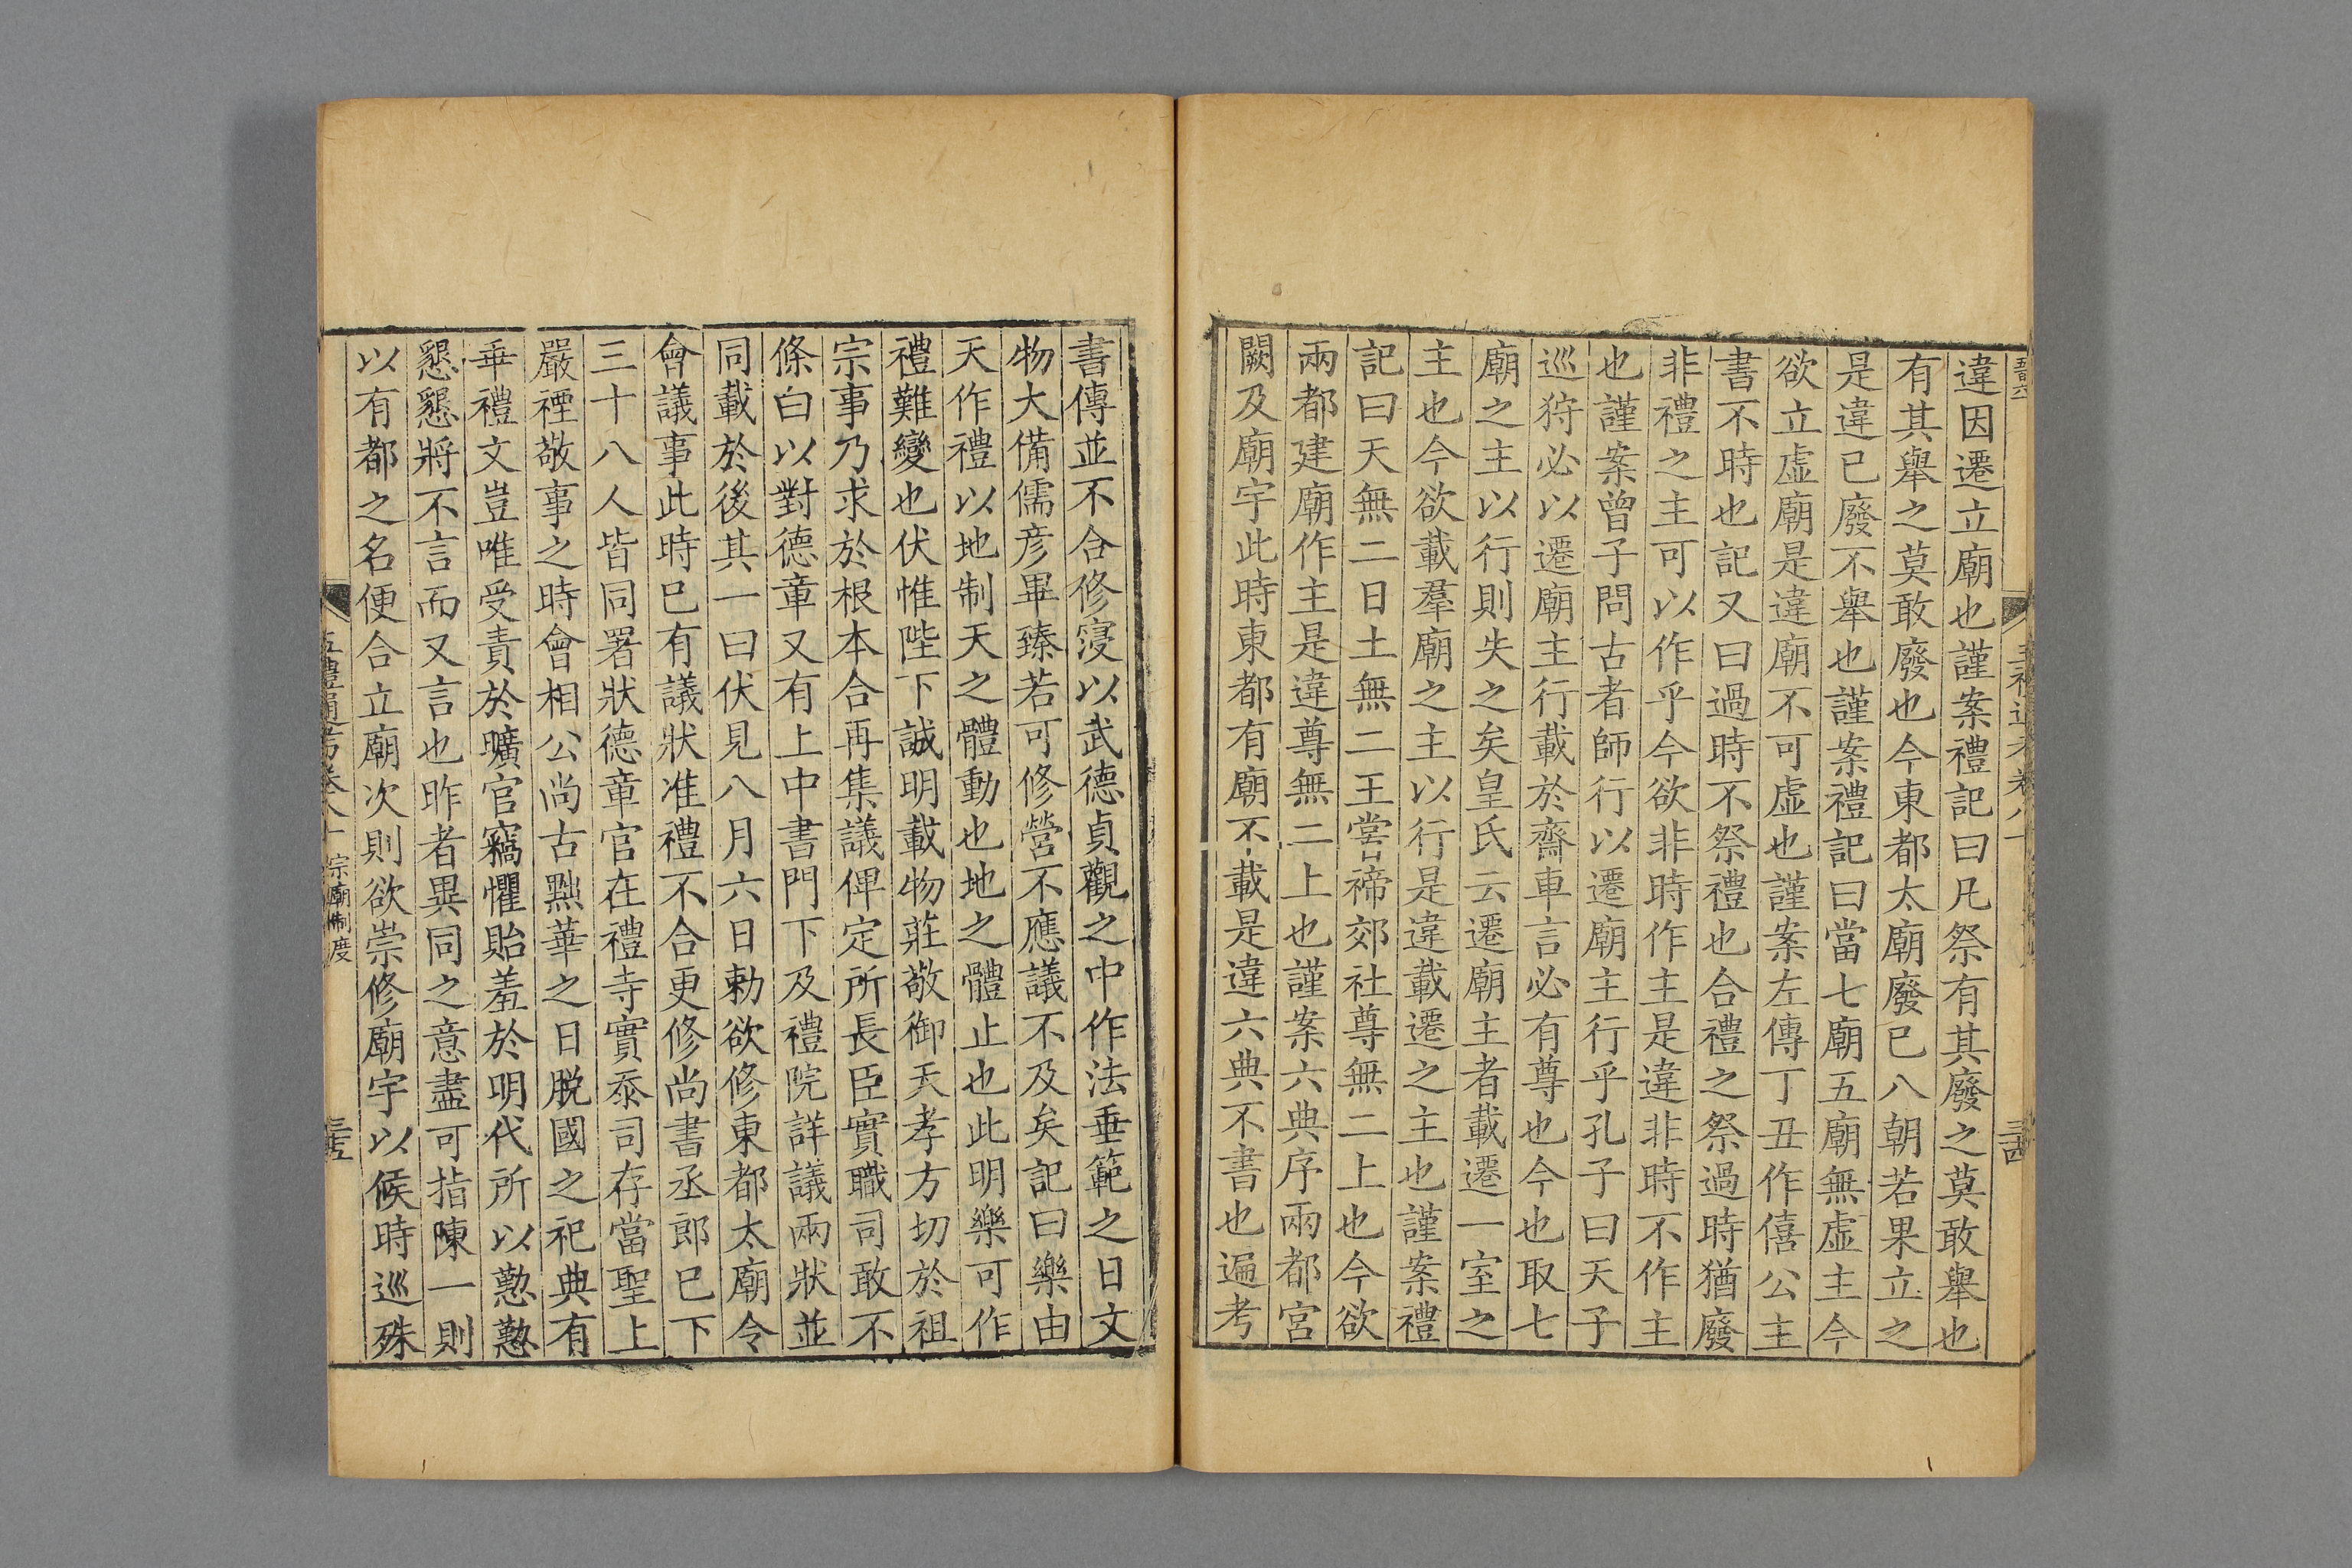 違因遷立廟也謹案禮記曰凡祭有其廢之莫敢舉也
有其舉之莫敢廢也今東都太廟廢已八朝若果立之
是違已廢不舉也謹案禮記曰當七廟五廟無虛主今
欲立虛廟是違廟不可虛也謹案左傳丁丑作僖公主
書不時也記又曰過時不祭禮也合禮之祭過時猶廢
非禮之主可以作乎今欲非時作主是違非時不作主
也謹案曾子問古者師行以遷廟主行乎孔子曰天子
巡狩必以遷廟主行載於齋車言必有尊也今也取七
廟之主以行則失之矣皇氏云遷廟主者載遷一室之
主也今欲載羣廟之主以行是違載遷之主也謹案禮
記曰天無二日土無二王嘗禘郊社尊無二上也今欲
兩都建廟作主是違尊無二上也謹案六典序兩都宮
闕及廟宇此時東都有廟不載是違六典不書也遍考
書傳並不合修寖以武德貞觀之中作法垂範之日文
物大備儒彥畢臻若可修營不應議不及矣記曰樂由
天作禮以地制天之體動也地之體止也此明樂可作
禮難變也伏惟陛下誠明載物莊敬御天孝方切於祖
宗事乃求於根本合再集議俾定所長臣實職司敢不
條白以對德章又有上中書門下及禮院詳議兩狀並
同載於後其一曰伏見八月六日勅欲修東都太廟令
會議事此時已有議狀准禮不合更修尚書丞郎已下
三十八人皆同署狀德章官在禮寺實忝司存當聖上
嚴禋敬事之時會相公尚古黜華之日脫國之祀典有
乖禮文豈唯受責於曠官竊懼貽羞於明代所以懃懃
懇懇將不言而又言也昨者異同之意盡可指陳一則
以有都之名便合立廟次則欲崇修廟宇以候時巡殊
五禮通考卷八十一 宗廟制度 三十五